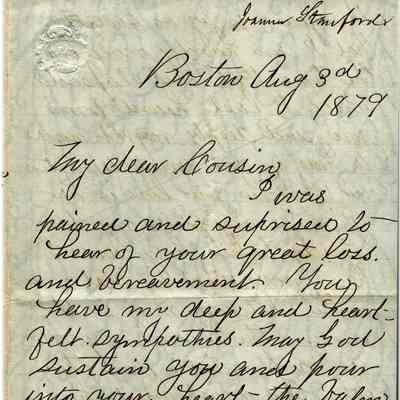 Joanna Stanford
Boston Aug 3d
1879
My dear Cousin
I was
pained and suprised to
hear of your great loss.
and bereavement You
have my deep and heart-
felt sympothies. May God
sustain you and pour
into your heart the balm